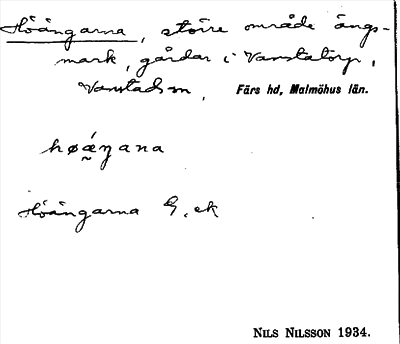 Höängarna, större område ängs-
mark, gårdar i Vanstatorp,
Vanstads sn, Färs hd, Malmöhus län.
høǽ̰ŋana
Höängarna G. ek
NILS NILSSON 1934.